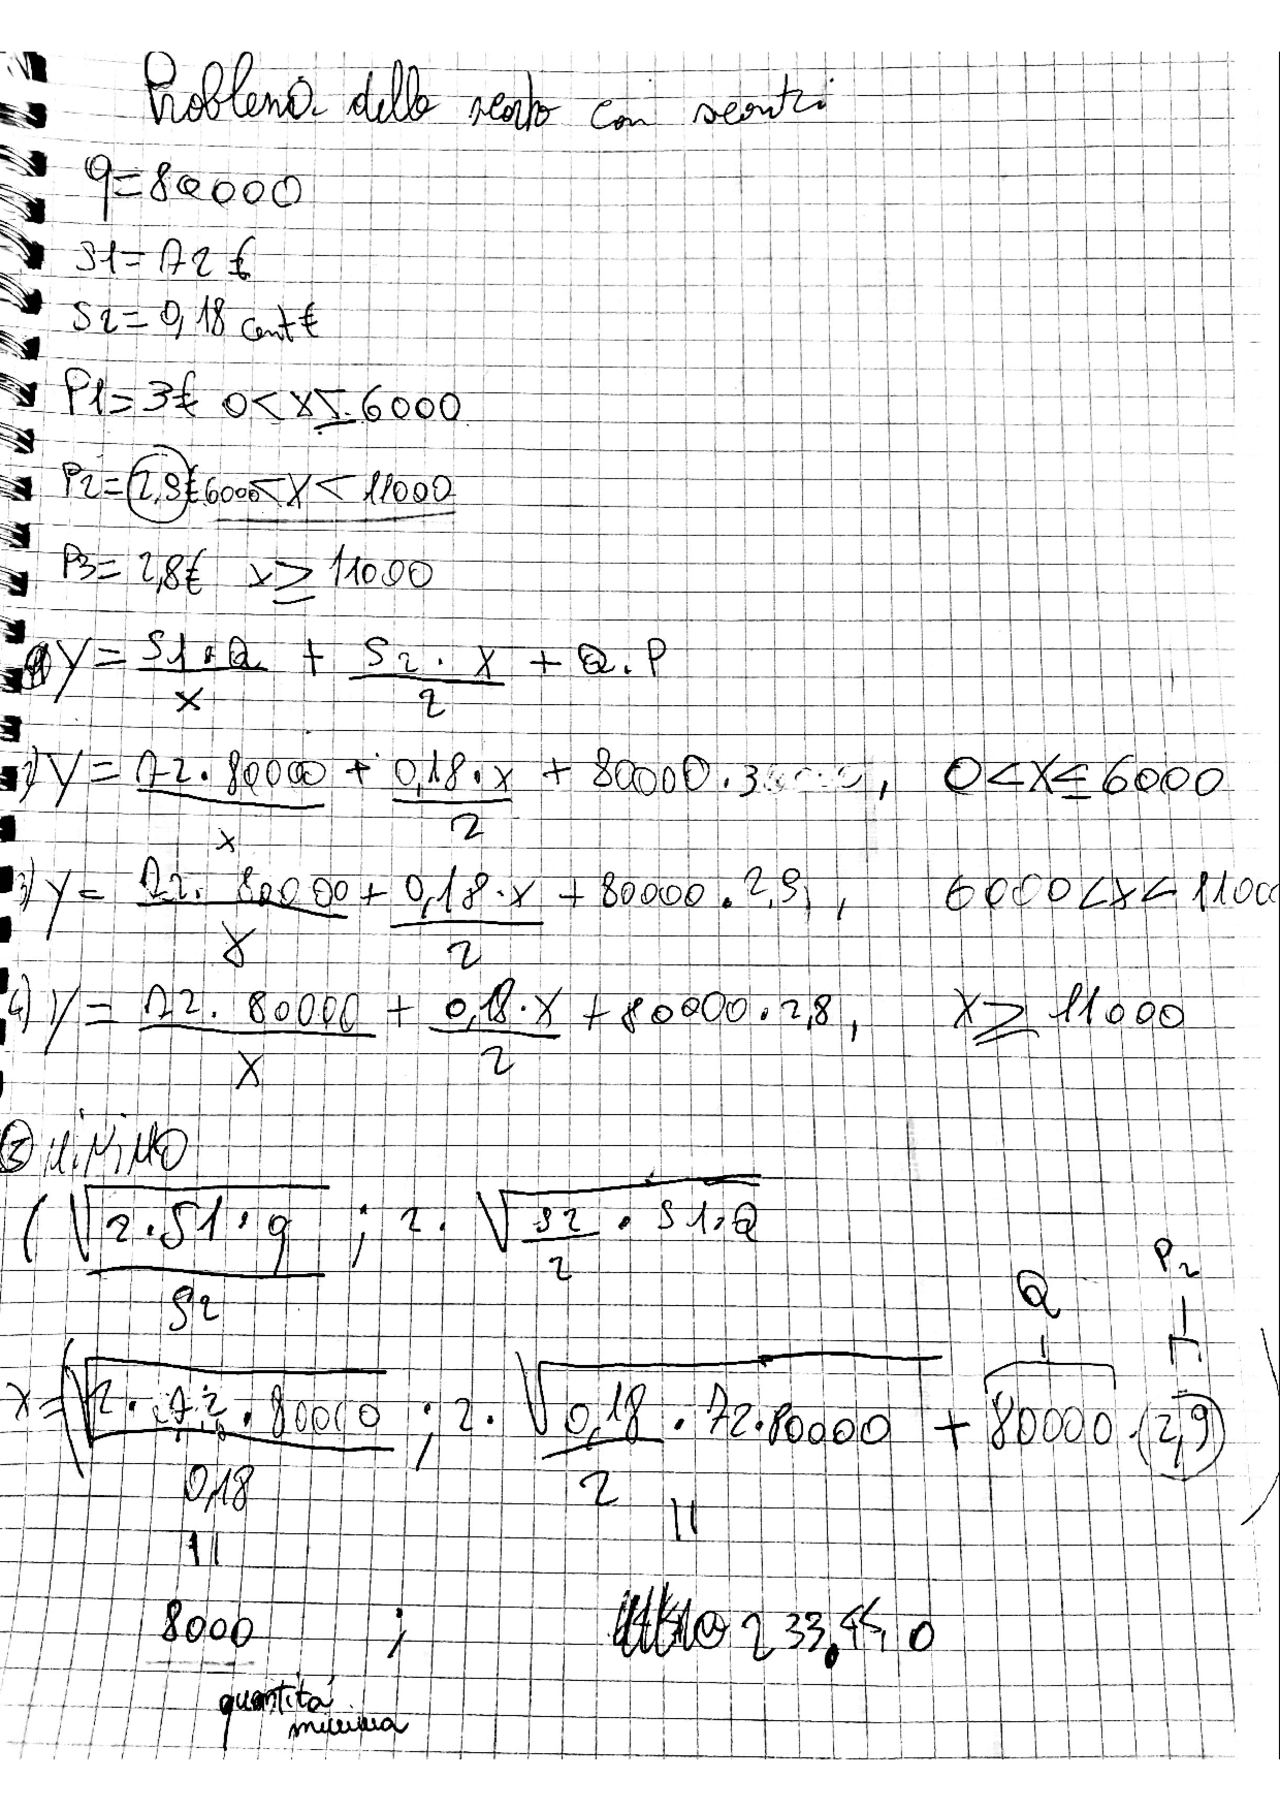 Problema delle scorte con sconti
q=80000
S1=72€
S2=0,18 cent€
P1=3€ 0<x≤6000
P2=2,9€ 6000<x<11000
P3=2,8€ x≥11000
1) y = S1·Q/x + S2·x/2 + Q·P
2) y = 72·80000/x + 0,18·x/2 + 80000·3, 0<x≤6000
3) y = 72·80000/x + 0,18·x/2 + 80000·2,9, 6000<x<11000
4) y = 72·80000/x + 0,18·x/2 + 80000·2,8, x≥11000
MiNiMO
(√(2·S1·q/S2) ; 2·√(S2/2·S1·Q)
Q P2
x=(√(2·72·80000/0,18) ; 2·√(0,18/2·72·80000) + 80000·(2,9))
= =
8000 ; 233.440
quantità
minima